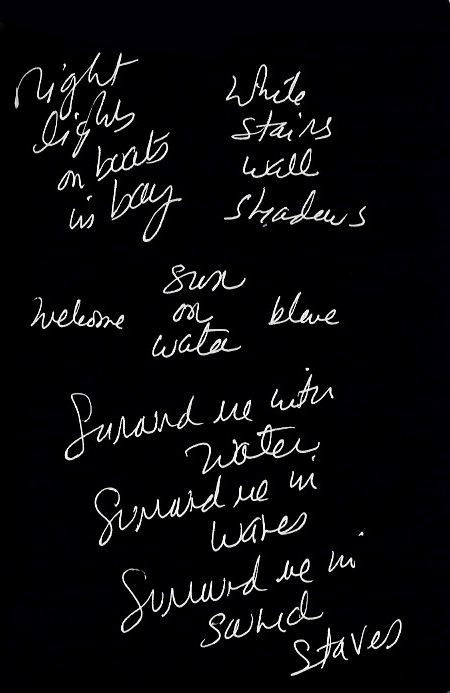 night
lights
on boats
in bay
White
stairs
wall
shadows
sun
Welcome on blue
water
Surround me with
Water
Surround me in
waves
Surround me in
staves